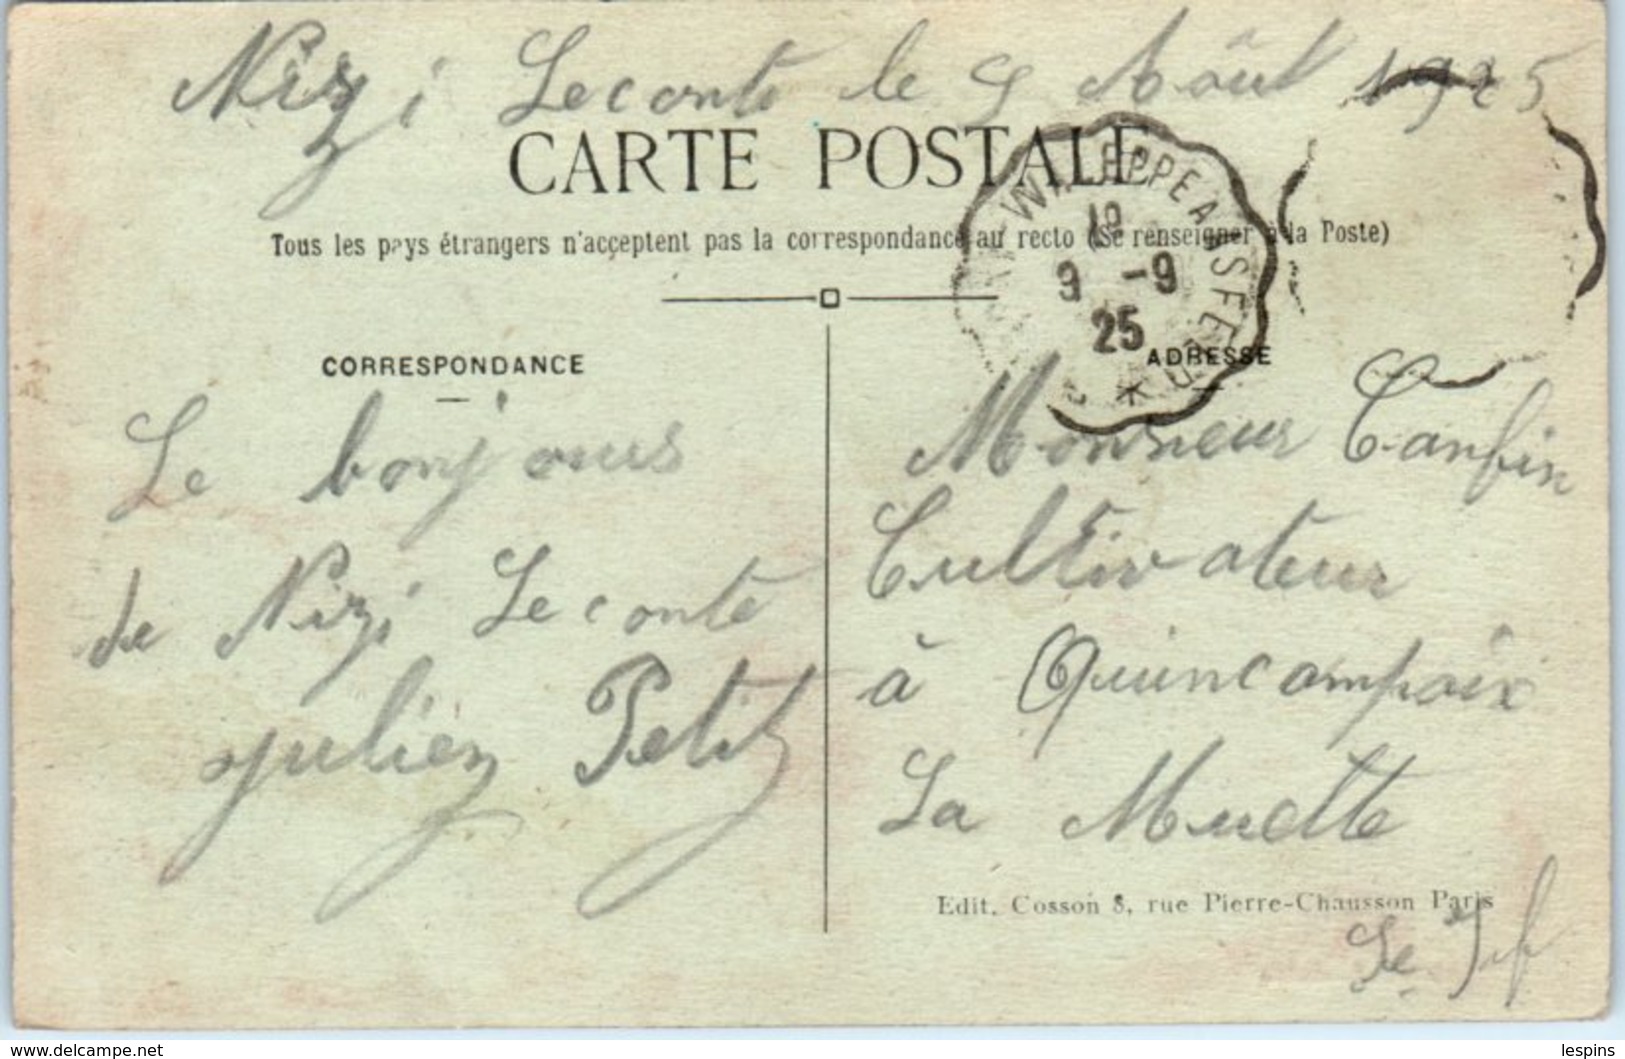 Nizi Leconte le 9 Aôut 1925
CARTE POSTALE
Tous les pays étrangers n'acceptent pas la correspondance au recto (Se renseigner à la Poste)
19
9 -9
25
CORRESPONDANCE
ADRESSE
Le bonjours
de Nizi Leconte
julien Petit
Monsieur Tanfin
Cultivateur
à Quincampoix
La Muette
Edit. Cosson 8, rue Pierre-Chausson Paris
www.delcampe.net
lespins